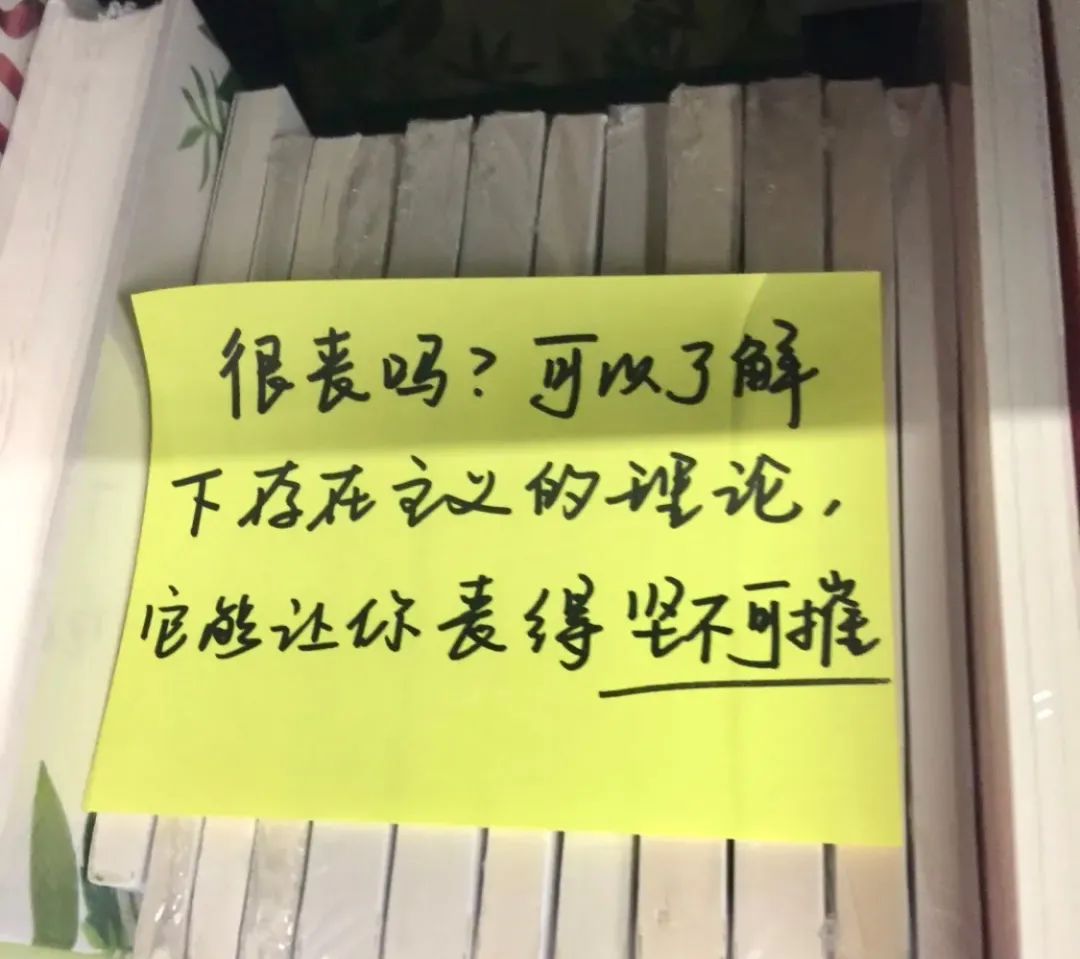 很丧吗？可以了解
下存在主义的理论，
它能让你丧得坚不可摧